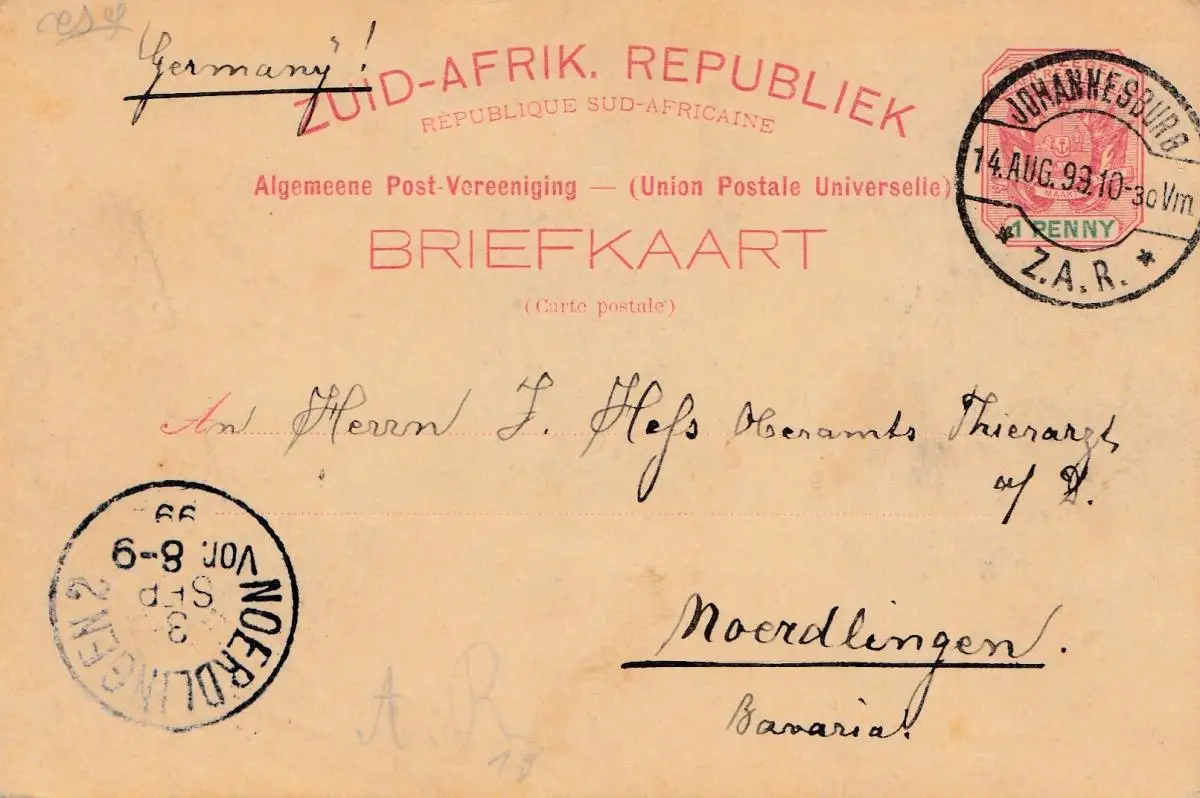 Germany!
ZUID-AFRIK. REPUBLIEK
RÉPUBLIQUE SUD-AFRICAINE
Algemeene Post-Vereeniging — (Union Postale Universelle)
BRIEFKAART
(Carte postale)
JOHANNESBURG
14.AUG.99.10-30Vm
1 PENNY
* Z.A.R. *
An Herrn J. Hess Oberamts Thierarzt
a/ D.
Noerdlingen.
Bavaria.
NOERDLINGEN 2
3
SEP
Vor. 8-9
99
A. R